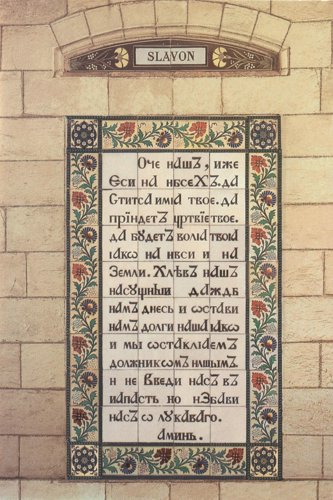 SLAVON
Оче нашъ, иже
Еси на нбсехъ. да
Ститса имıа твое. да
прїидетъ цртвıетвое.
да будетъ волıа твоıа
ıако на нвси и на
Земли. Хлѣвъ нашъ
насущныı даждь
намъ днесь и ѡстави
намъ долги нашаıако
и мы ѡставлıаемъ
должникомъ нашымъ.
и не Введи насъ въ
иапасть но иЗбави
насъ ѡ лукаваго.
Аминь.